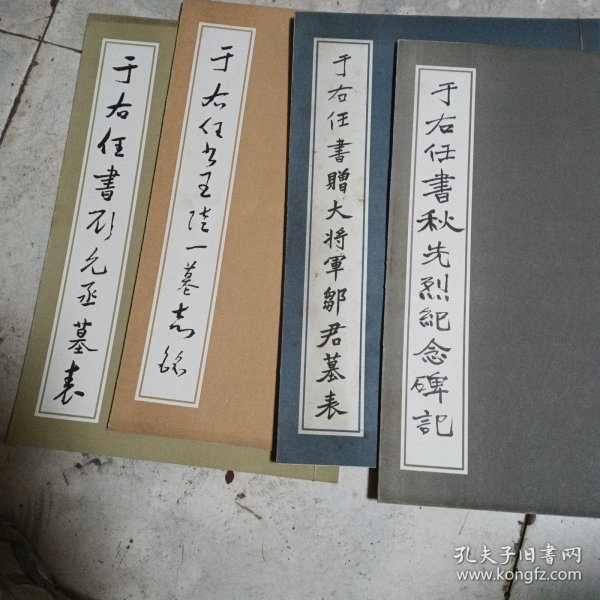 于右任書彭允丞墓表
于右任書王陸一墓志銘
于右任書贈大将軍鄒君墓表
于右任書秋先烈紀念碑記
孔夫子旧書网
www.kongfz.com